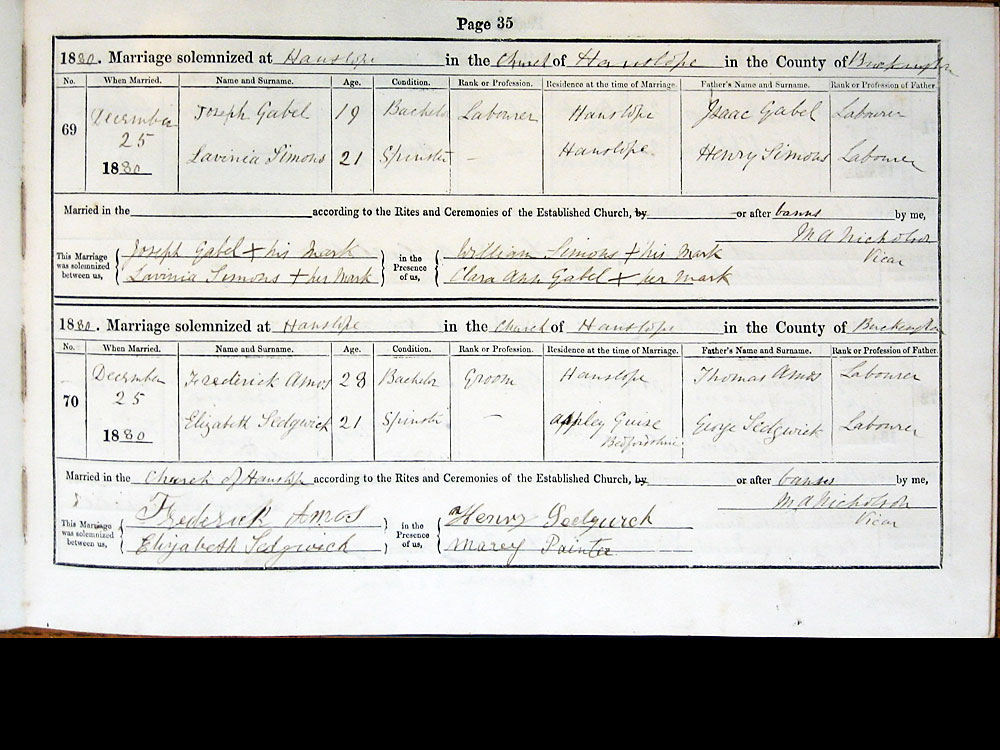 Page 35
1880. Marriage solemnized at Hanslope in the Church of Hanslope in the County of Buckingham
No. When Married. Name and Surname. Age. Condition. Rank or Profession. Residence at the time of Marriage. Father's Name and Surname. Rank or Profession of Father.
December Joseph Gabel 19 Bachelor Labourer Hanslope Isaac Gabel Labourer
69 25
1880 Lavinia Simons 21 Spinster — Hanslope Henry Simons Labourer
Married in the according to the Rites and Ceremonies of the Established Church, by or after banns by me,
M A Nicholson
Vicar
This Marriage was solemnized between us, Joseph Gabel + his Mark in the Presence of us, William Simons + his Mark
Lavinia Simons + her Mark Clara Ann Gabel + her Mark
1880. Marriage solemnized at Hanslope in the Church of Hanslope in the County of Buckingham
No. When Married. Name and Surname. Age. Condition. Rank or Profession. Residence at the time of Marriage. Father's Name and Surname. Rank or Profession of Father.
December Frederick Amos 28 Bachelor Groom Hanslope Thomas Amos Labourer
70 25
1880 Elizabeth Sedgwick 21 Spinster — Appley Guise Bedfordshire George Sedgwick Labourer
Married in the Church of Hanslope according to the Rites and Ceremonies of the Established Church, by or after banns by me,
M A Nicholson
Vicar
This Marriage was solemnized between us, Frederick Amos in the Presence of us, Henry Sedgwick
Elizabeth Sedgwick Marey Painter